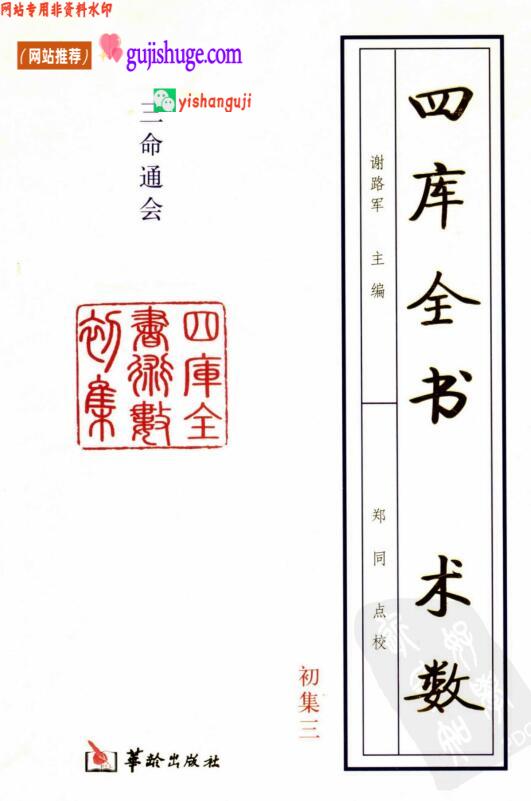 网站专用非资料水印
（网站推荐）
gujishuge.com
yishanguji
三命通会
四库全书 术数
谢路军 主编
郑同点校
四庫全
書術數
初集
初集三
華龄出版社